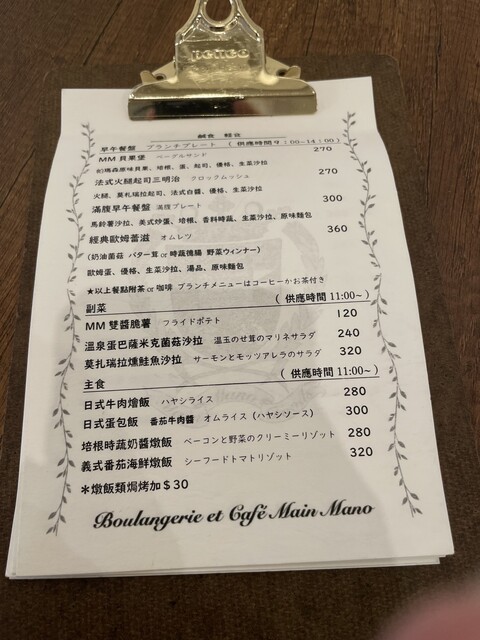 penco
鹹食 輕食
早午餐盤 ブランチプレート ( 供應時間9：00~14：00)
MM 貝果堡 ベーグルサンド 270
帕瑪森原味貝果、培根、蛋、起司、優格、生菜沙拉
法式火腿起司三明治 クロックムッシュ 270
火腿、莫札瑞拉起司、法式白醬、優格、生菜沙拉
滿腹早午餐盤 満腹プレート 300
馬鈴薯沙拉、美式炒蛋、培根、香料時蔬、生菜沙拉、原味麵包
經典歐姆蕾滋 オムレツ 360
(奶油菌菇 バター茸 or 時蔬德腸 野菜ウィンナー)
歐姆蛋、優格、生菜沙拉、湯品、原味麵包
★以上餐點附茶 or 咖啡 ブランチメニューはコーヒーかお茶付き
副菜 ( 供應時間 11:00~ )
MM 雙醬脆薯 フライドポテト 120
溫泉蛋巴薩米克菌菇沙拉 温玉のせ茸のマリネサラダ 240
莫扎瑞拉燻鮭魚沙拉 サーモンとモッツアレラのサラダ 320
主食 ( 供應時間 11:00~ )
日式牛肉燴飯 ハヤシライス 280
日式蛋包飯 番茄牛肉醬 オムライス (ハヤシソース) 300
培根時蔬奶醬燉飯 ベーコンと野菜のクリーミーリゾット 280
義式番茄海鮮燉飯 シーフードトマトリゾット 320
＊燉飯類焗烤加＄30
Boulangerie et Café Main Mano